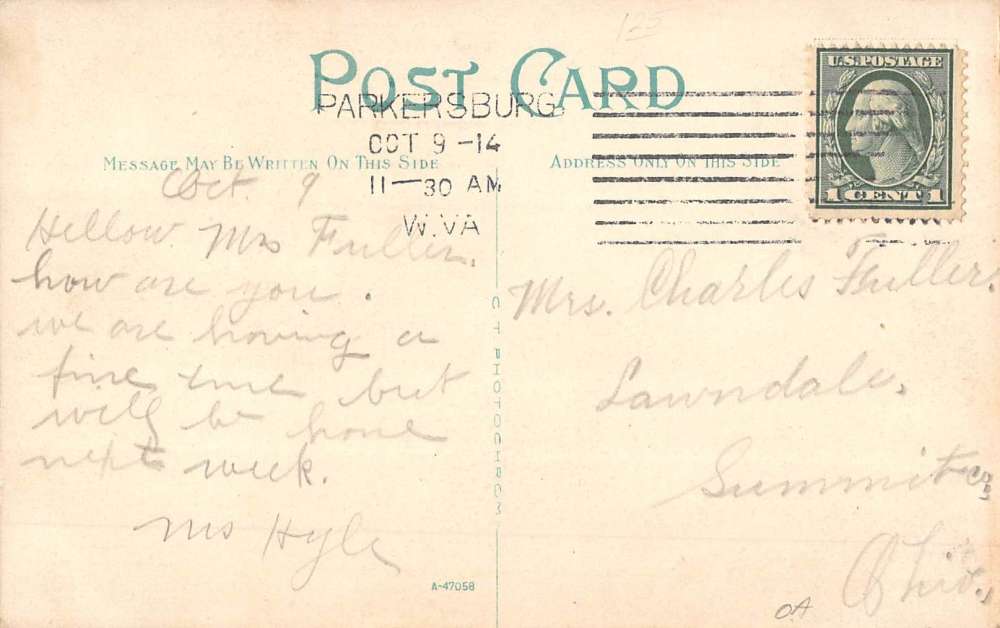 125
POST CARD
U.S. POSTAGE
1 CENT 1
PARKERSBURG
OCT 9 -14
11-30 AM
W.VA
MESSAGE MAY BE WRITTEN ON THIS SIDE
ADDRESS ONLY ON THIS SIDE
Oct. 9
Hellow Mrs Fuller.
how are you.
we are having a
fine time but
will be home
next week.
Mrs Hyle
Mrs. Charles Fuller.
Lawndale.
Summit Co.,
Ohio.
C T PHOTOCHROM
A-47058
OA